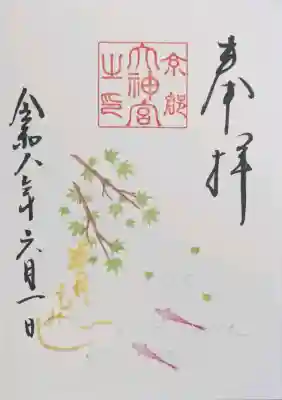 奉拝
京都
大神宮
之印
令和八年六月一日